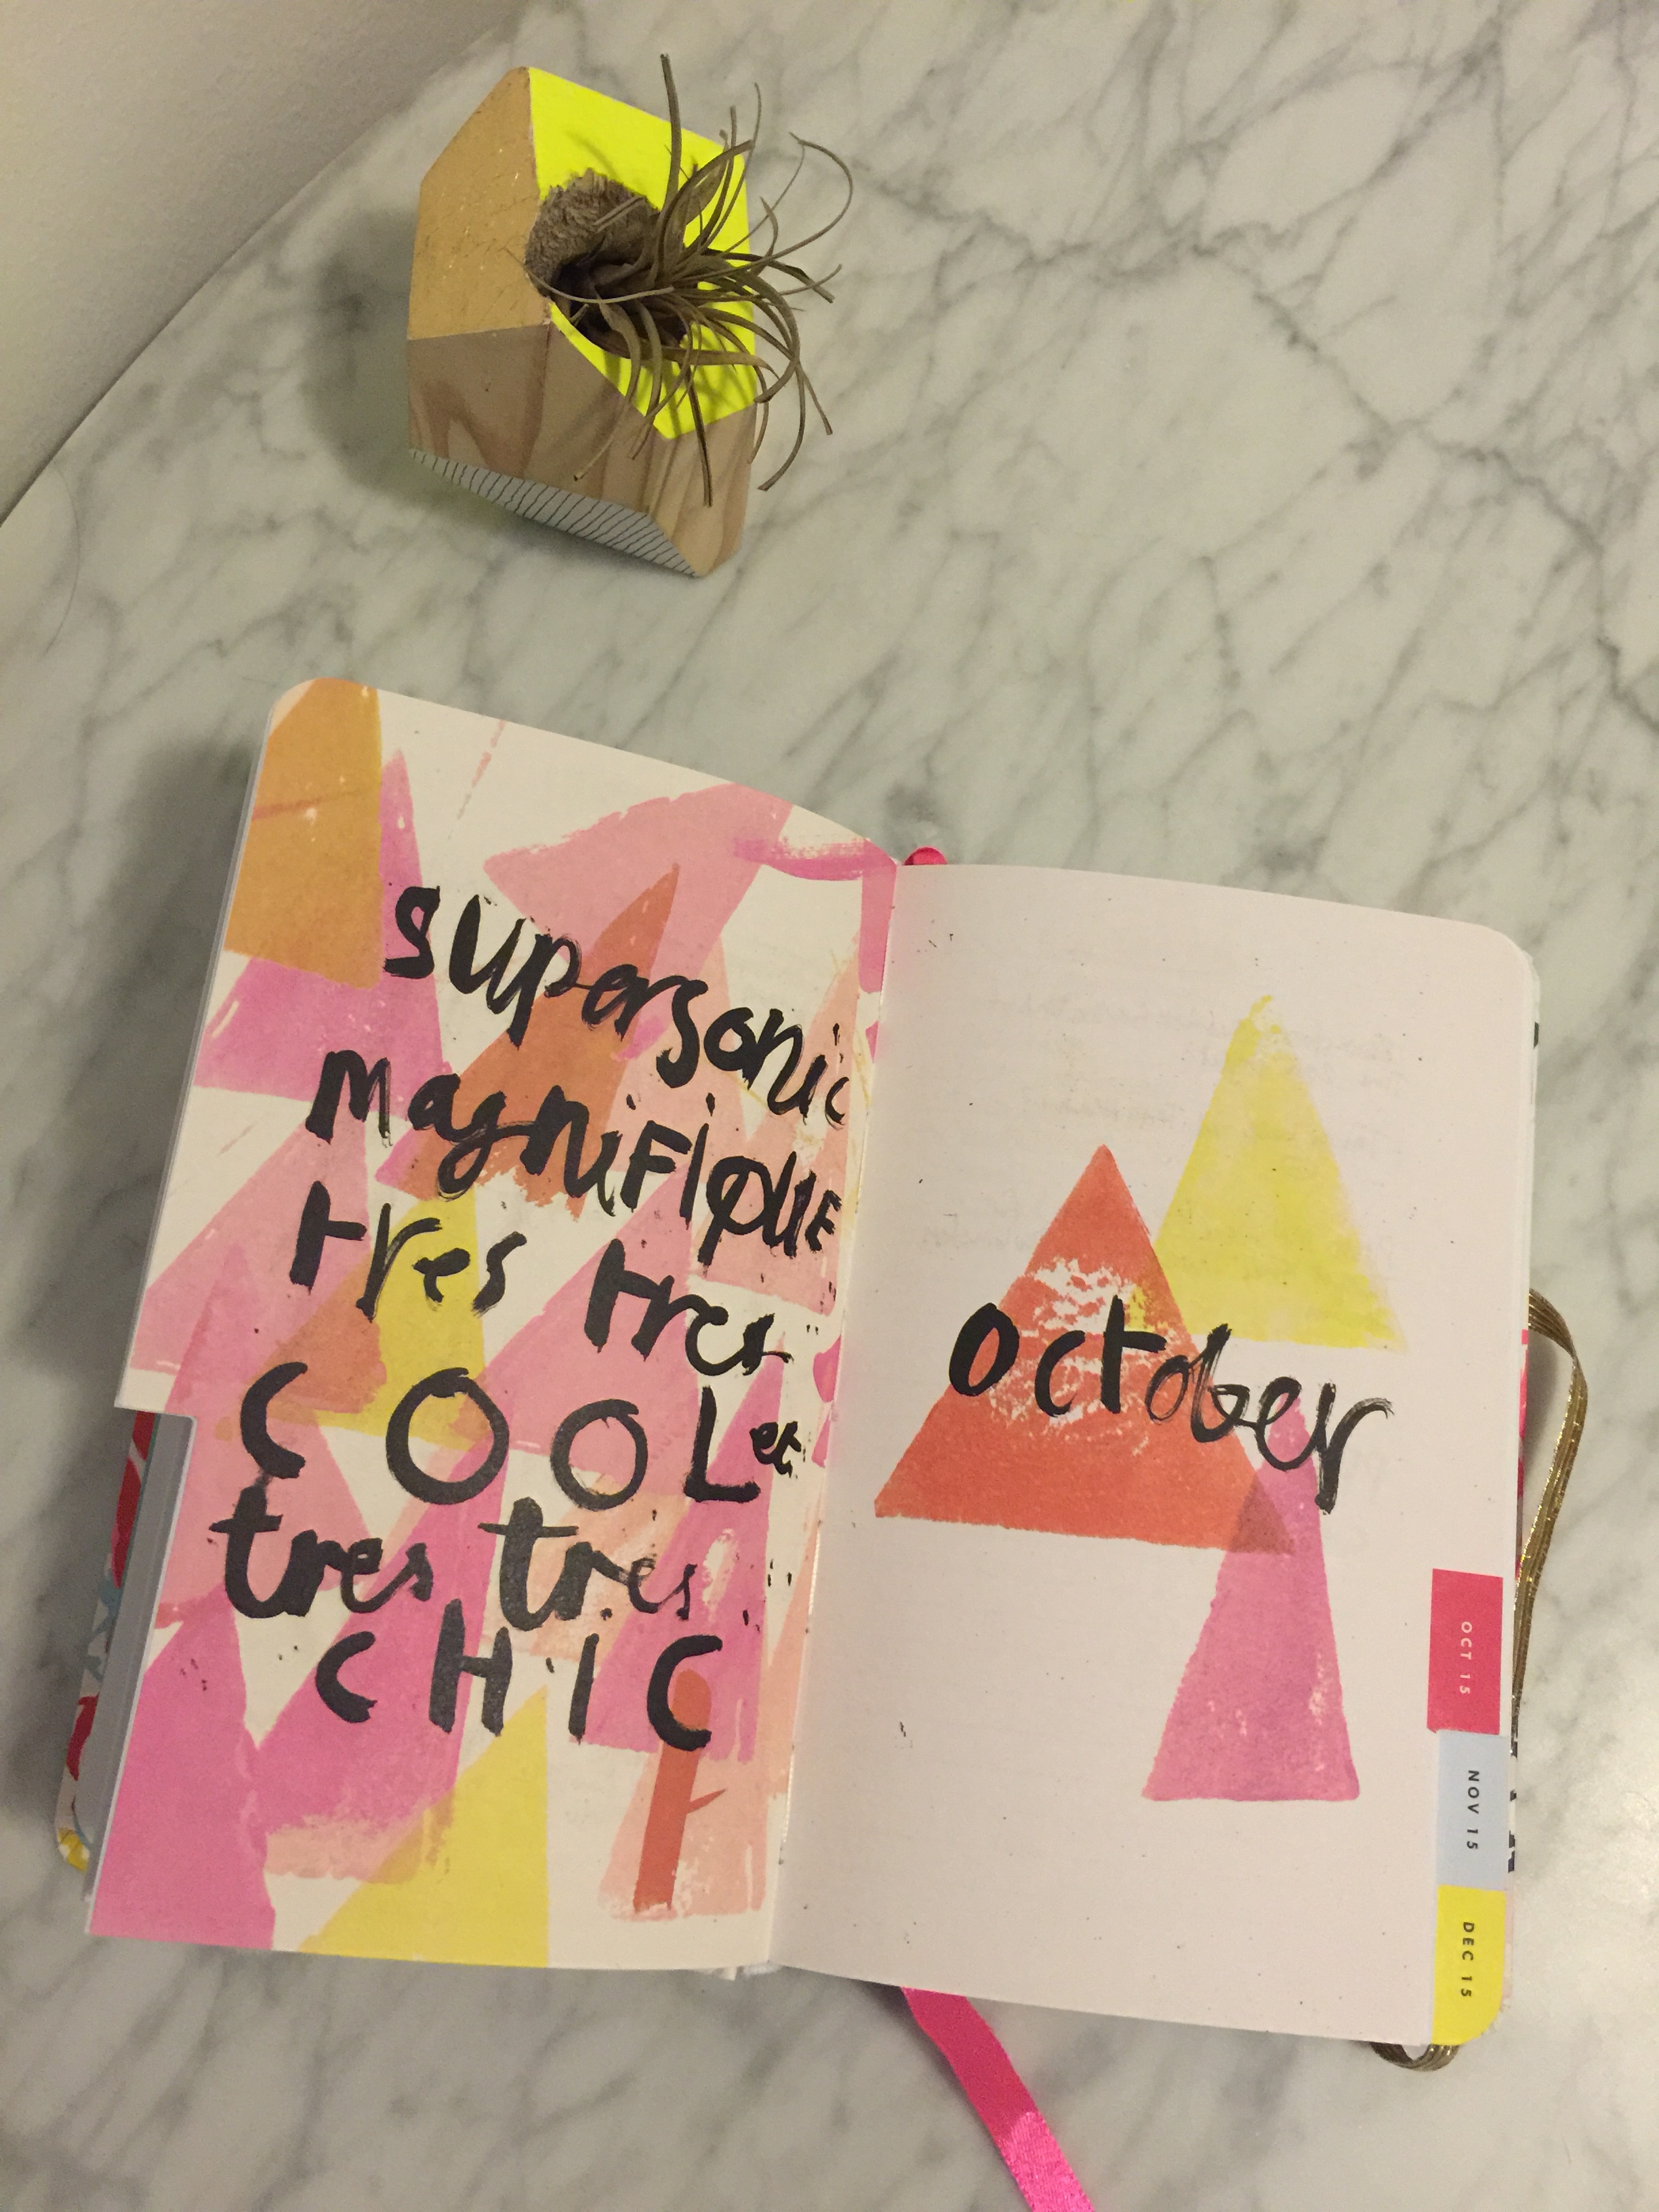 supersonic
magniFiQUE
tres tres
COOL et
tres tres
CHIC
october
OCT 15
NOV 15
DEC 15